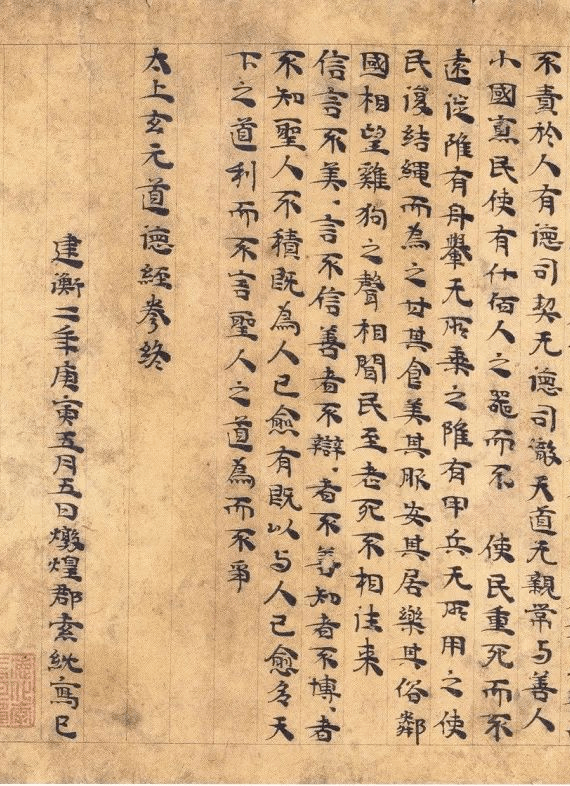 不責於人有德司契无德司徹天道无親常与善人
小國寡民使有什佰人之器而不 使民重死而不
遠徙雖有舟轝无所乘之雖有甲兵无所用之使
民復結繩而為之甘其食美其服安其居樂其俗鄰
國相望雞狗之聲相聞民至老死不相往来
信言不美、言不信善者不辯、者不善知者不博、者
不知聖人不積既為人己愈有既以与人己愈多天
下之道利而不害聖人之道為而不爭
太上玄元道德經卷終
建衡二年庚寅五月五日燉煌郡索紞寫已